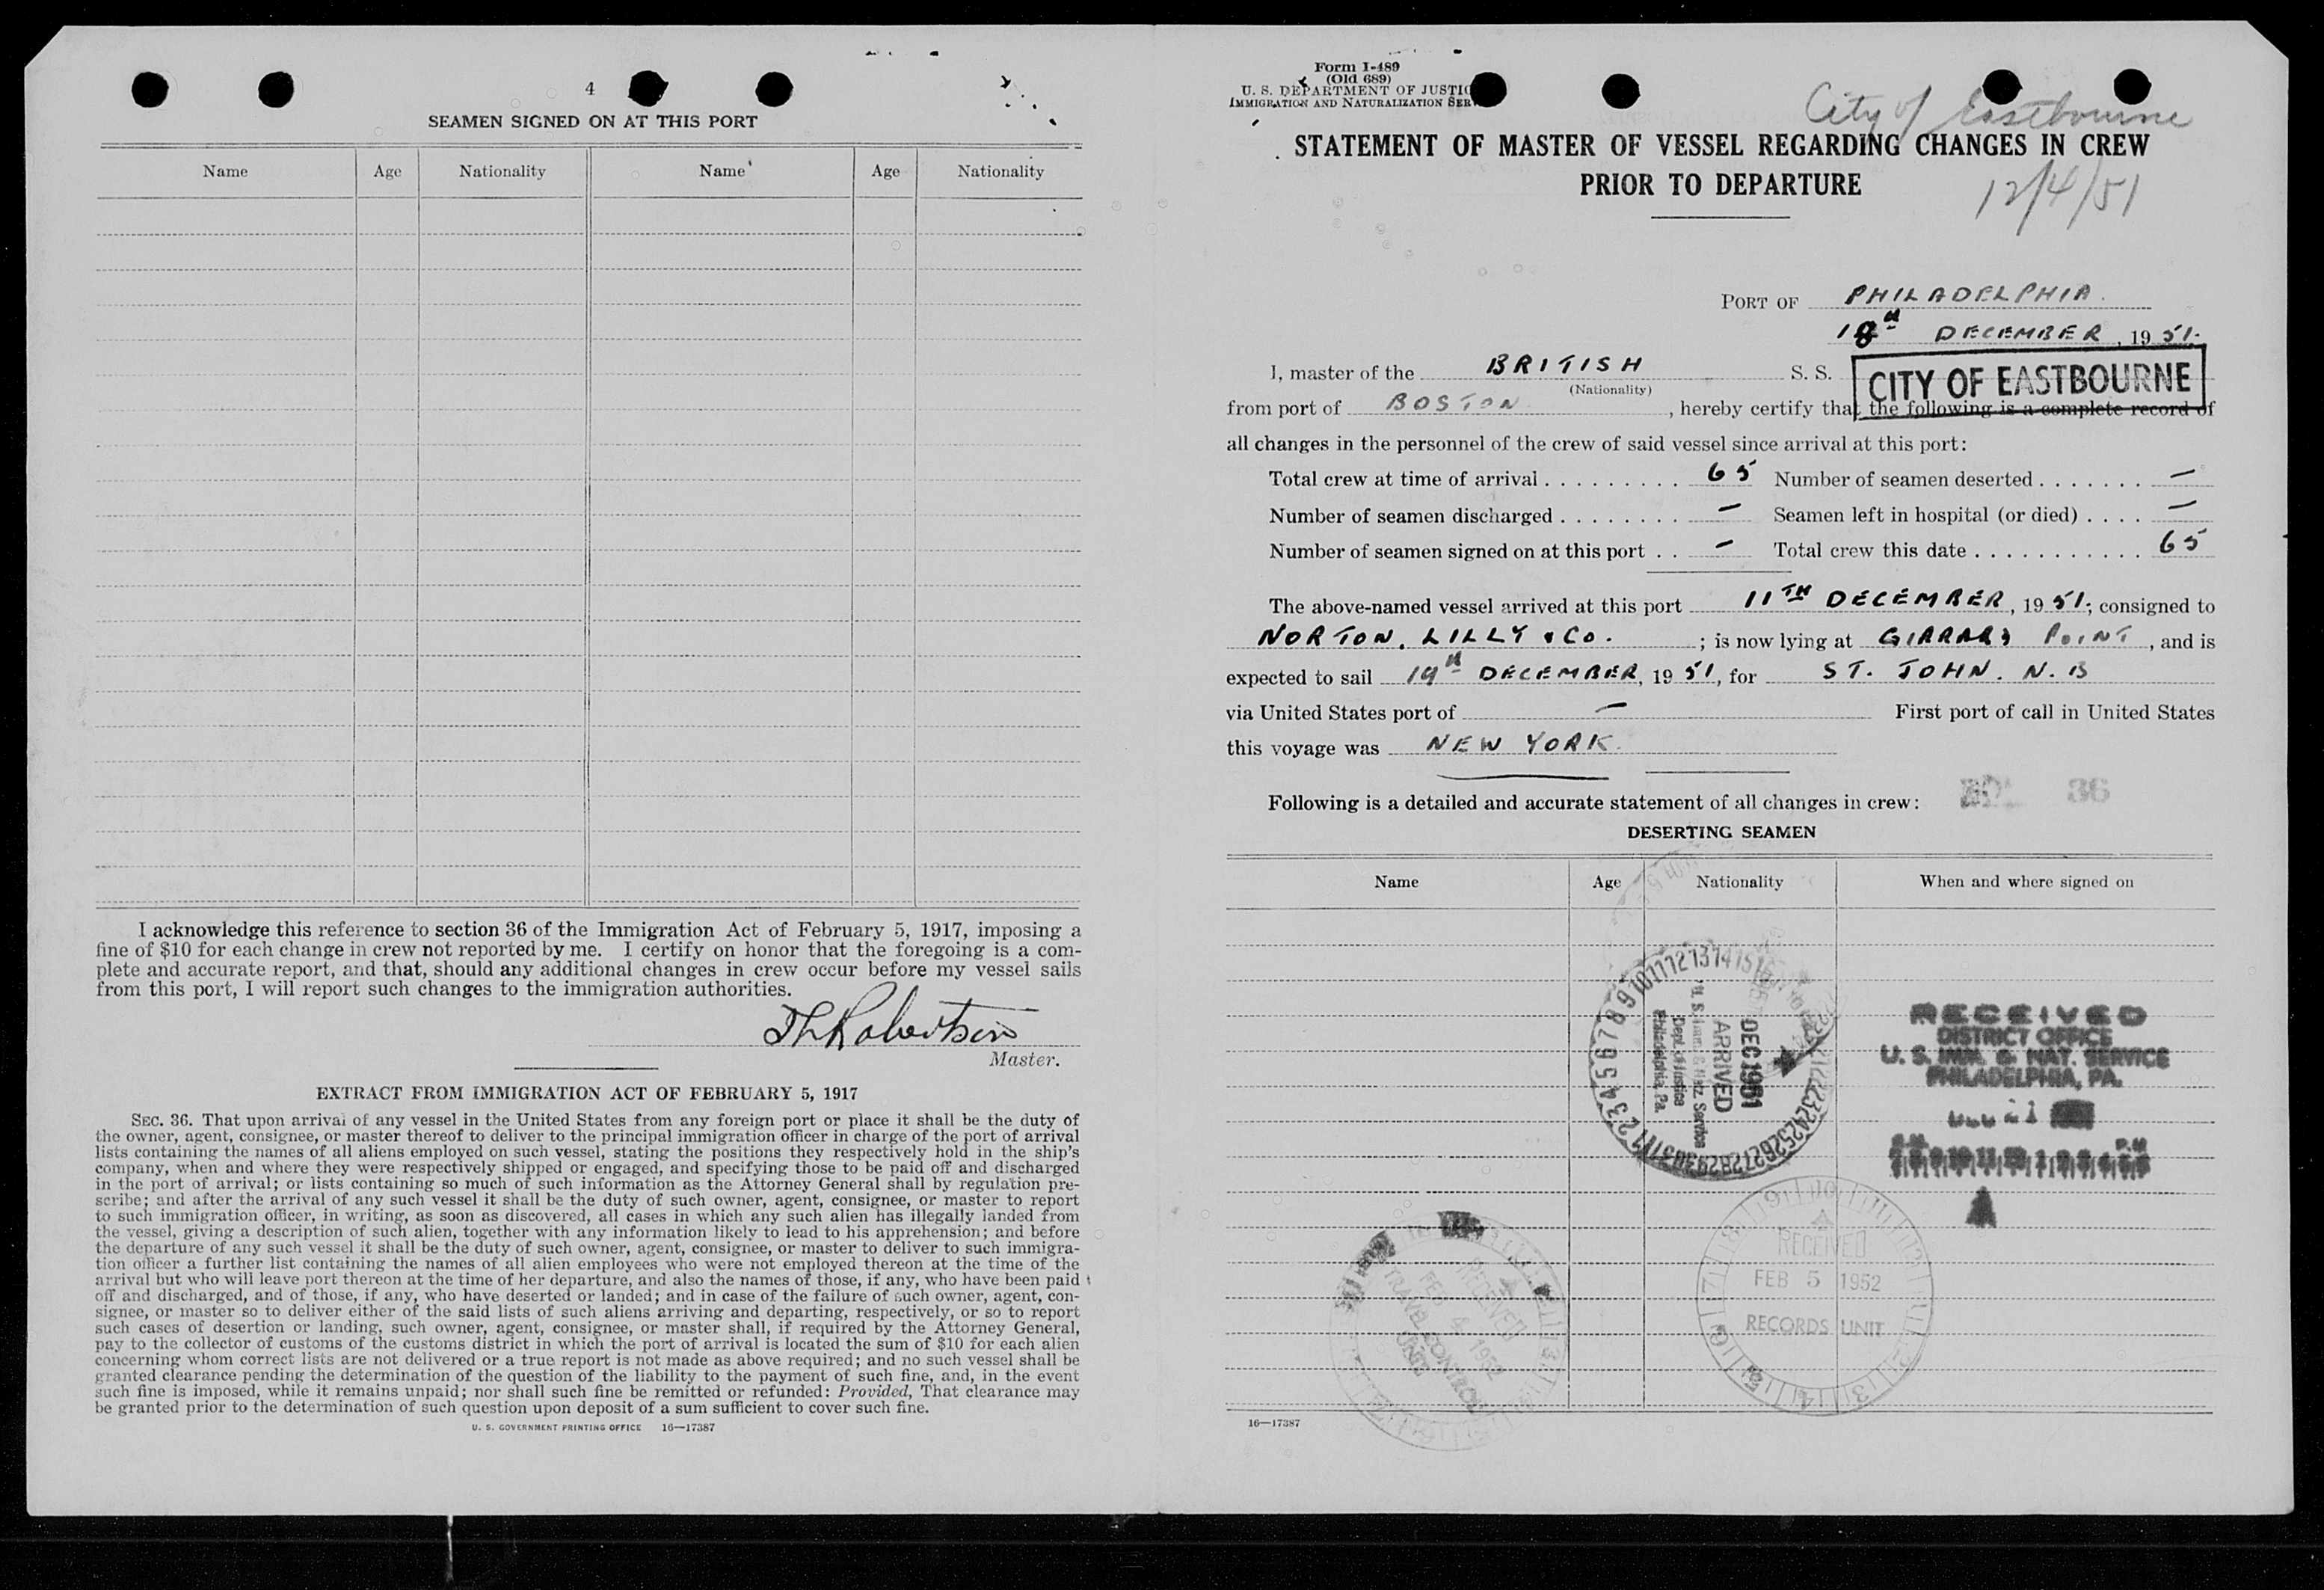 4
SEAMEN SIGNED ON AT THIS PORT
Name Age Nationality Name Age Nationality
I acknowledge this reference to section 36 of the Immigration Act of February 5, 1917, imposing a
fine of $10 for each change in crew not reported by me. I certify on honor that the foregoing is a com-
plete and accurate report, and that, should any additional changes in crew occur before my vessel sails
from this port, I will report such changes to the immigration authorities.
Robertson
Master.
EXTRACT FROM IMMIGRATION ACT OF FEBRUARY 5, 1917
SEC. 36. That upon arrival of any vessel in the United States from any foreign port or place it shall be the duty of
the owner, agent, consignee, or master thereof to deliver to the principal immigration officer in charge of the port of arrival
lists containing the names of all aliens employed on such vessel, stating the positions they respectively hold in the ship's
company, when and where they were respectively shipped or engaged, and specifying those to be paid off and discharged
in the port of arrival; or lists containing so much of such information as the Attorney General shall by regulation pre-
scribe; and after the arrival of any such vessel it shall be the duty of such owner, agent, consignee, or master to report
to such immigration officer, in writing, as soon as discovered, all cases in which any such alien has illegally landed from
the vessel, giving a description of such alien, together with any information likely to lead to his apprehension; and before
the departure of any such vessel it shall be the duty of such owner, agent, consignee, or master to deliver to such immigra-
tion officer a further list containing the names of all alien employees who were not employed thereon at the time of the
arrival but who will leave port thereon at the time of her departure, and also the names of those, if any, who have been paid
off and discharged, and of those, if any, who have deserted or landed; and in case of the failure of such owner, agent, con-
signee, or master so to deliver either of the said lists of such aliens arriving and departing, respectively, or so to report
such cases of desertion or landing, such owner, agent, consignee, or master shall, if required by the Attorney General,
pay to the collector of customs of the customs district in which the port of arrival is located the sum of $10 for each alien
concerning whom correct lists are not delivered or a true report is not made as above required; and no such vessel shall be
granted clearance pending the determination of the question of the liability to the payment of such fine, and, in the event
such fine is imposed, while it remains unpaid; nor shall such fine be remitted or refunded: Provided, That clearance may
be granted prior to the determination of such question upon deposit of a sum sufficient to cover such fine.
U. S. GOVERNMENT PRINTING OFFICE 16—17387
Form I-489
(Old 689)
U. S. DEPARTMENT OF JUSTIC
IMMIGRATION AND NATURALIZATION SER
City of Eastbourne
STATEMENT OF MASTER OF VESSEL REGARDING CHANGES IN CREW
PRIOR TO DEPARTURE
12/4/51
PORT OF PHILADELPHIA.
18th DECEMBER, 19 51.
I, master of the BRITISH S. S. CITY OF EASTBOURNE
(Nationality)
from port of BOSTON, hereby certify that the following is a complete record of
all changes in the personnel of the crew of said vessel since arrival at this port:
Total crew at time of arrival 65 Number of seamen deserted —
Number of seamen discharged — Seamen left in hospital (or died) —
Number of seamen signed on at this port — Total crew this date 65
The above-named vessel arrived at this port 11TH DECEMBER, 19 51; consigned to
NORTON. LILLY & CO. ; is now lying at GIRRARD POINT, and is
expected to sail 19th DECEMBER, 19 51, for ST. JOHN. N. B
via United States port of — First port of call in United States
this voyage was NEW YORK.
Following is a detailed and accurate statement of all changes in crew:
36
DESERTING SEAMEN
Name Age Nationality When and where signed on
DEC 1951
ARRIVED
U. S. Imm. & Natz. Service
Dept. of Justice
Philadelphia, Pa.
RECEIVED
DISTRICT OFFICE
U. S. IMM. & NAT. SERVICE
PHILADELPHIA, PA.
RECEIVED
FEB 4 1952
TRAVEL CONTROL
UNIT
RECEIVED
FEB 5 1952
RECORDS UNIT
16—17387